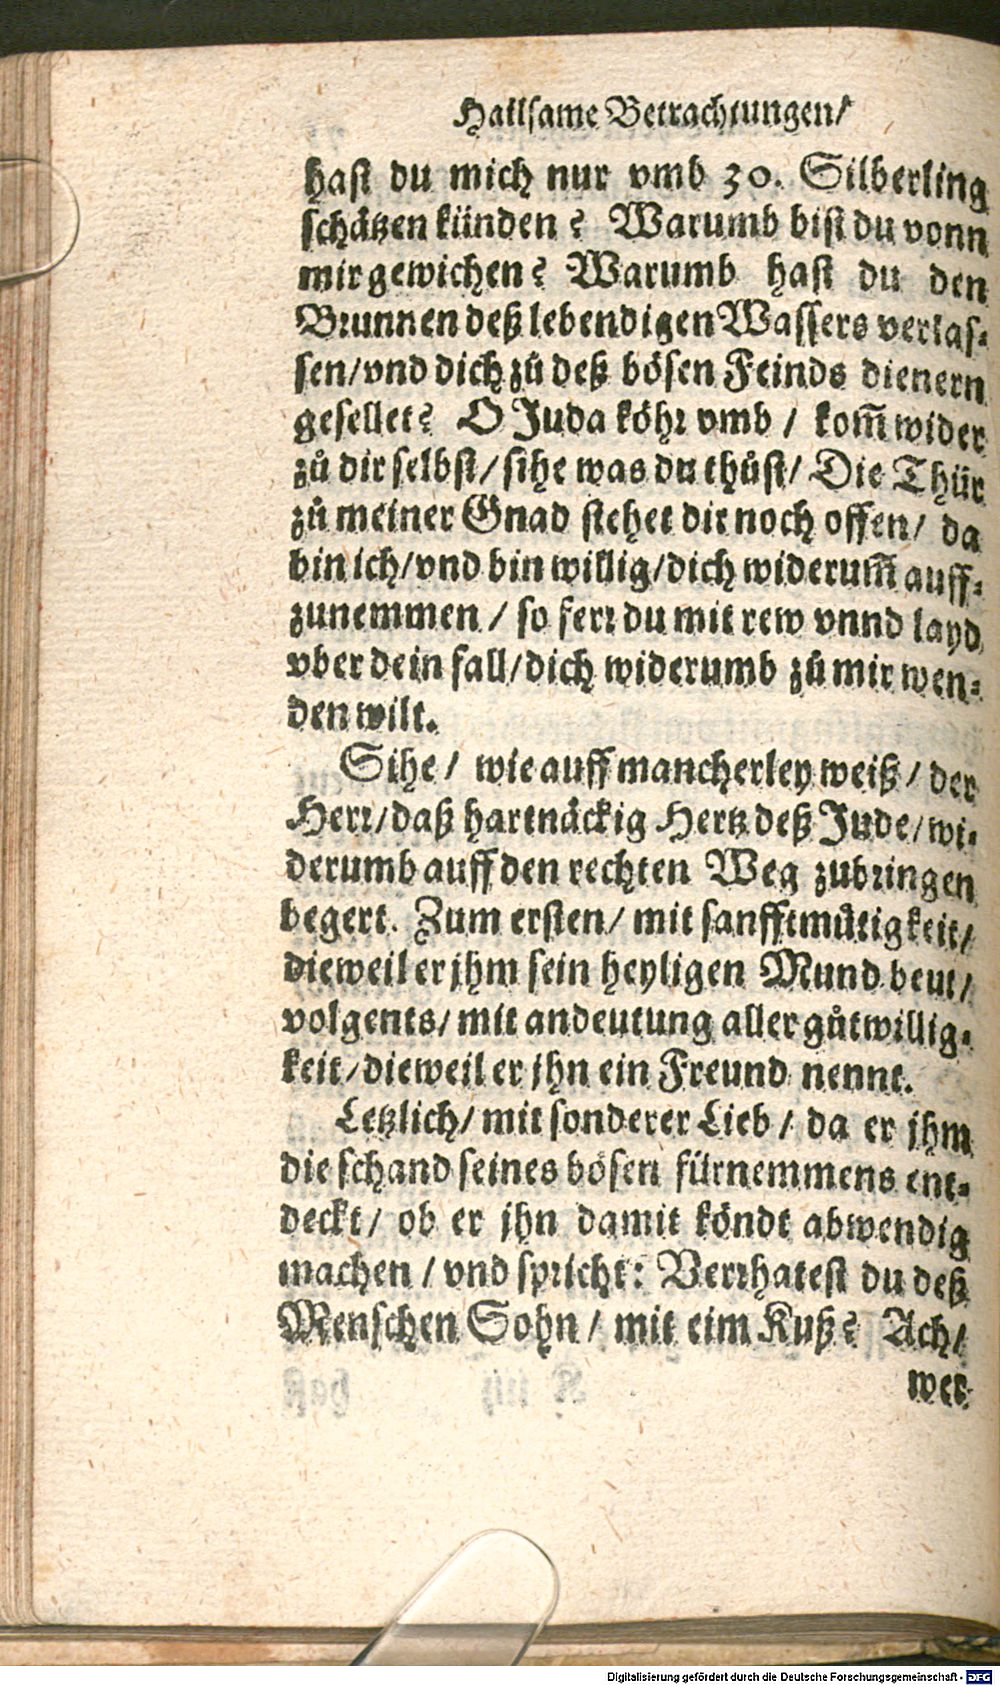 Hailsame Betrachtungen/
hast du mich nur vmb 30. Silberling
schätzen künden? Warumb bist du vonn
mir gewichen? Warumb hast du den
Brunnen deß lebendigen Wassers verlas-
sen/vnd dich zů deß bösen Feinds dienern
gesellet? O Juda köhr vmb / kom̃ wider
zů dir selbst/ sihe was du thůst/ Die Thür
zů meiner Gnad stehet dir noch offen/ da
bin ich/vnd bin willig/dich widerum̃ auff-
zunemmen / so ferr du mit rew vnnd layd
vber dein fall/dich widerumb zů mir wen-
den wilt.
Sihe / wie auff mancherley weiß / der
Herr/daß hartnäckig Hertz deß Jude/wi-
derumb auff den rechten Weg zubringen
begert. Zum ersten/ mit sanfftmůtigkeit/
dieweil er jhm sein heyligen Mund beut/
volgents/ mit andeutung aller gůtwillig-
keit/dieweil er jhn ein Freund nennt.
Letzlich/ mit sonderer Lieb / da er jhm
die schand seines bösen fürnemmens ent-
deckt/ ob er jhn damit köndt abwendig
machen / vnd spricht: Verrhatest du deß
Menschen Sohn / mit eim Kuß? Ach/
wer
Digitalisierung gefördert durch die Deutsche Forschungsgemeinschaft - DFG